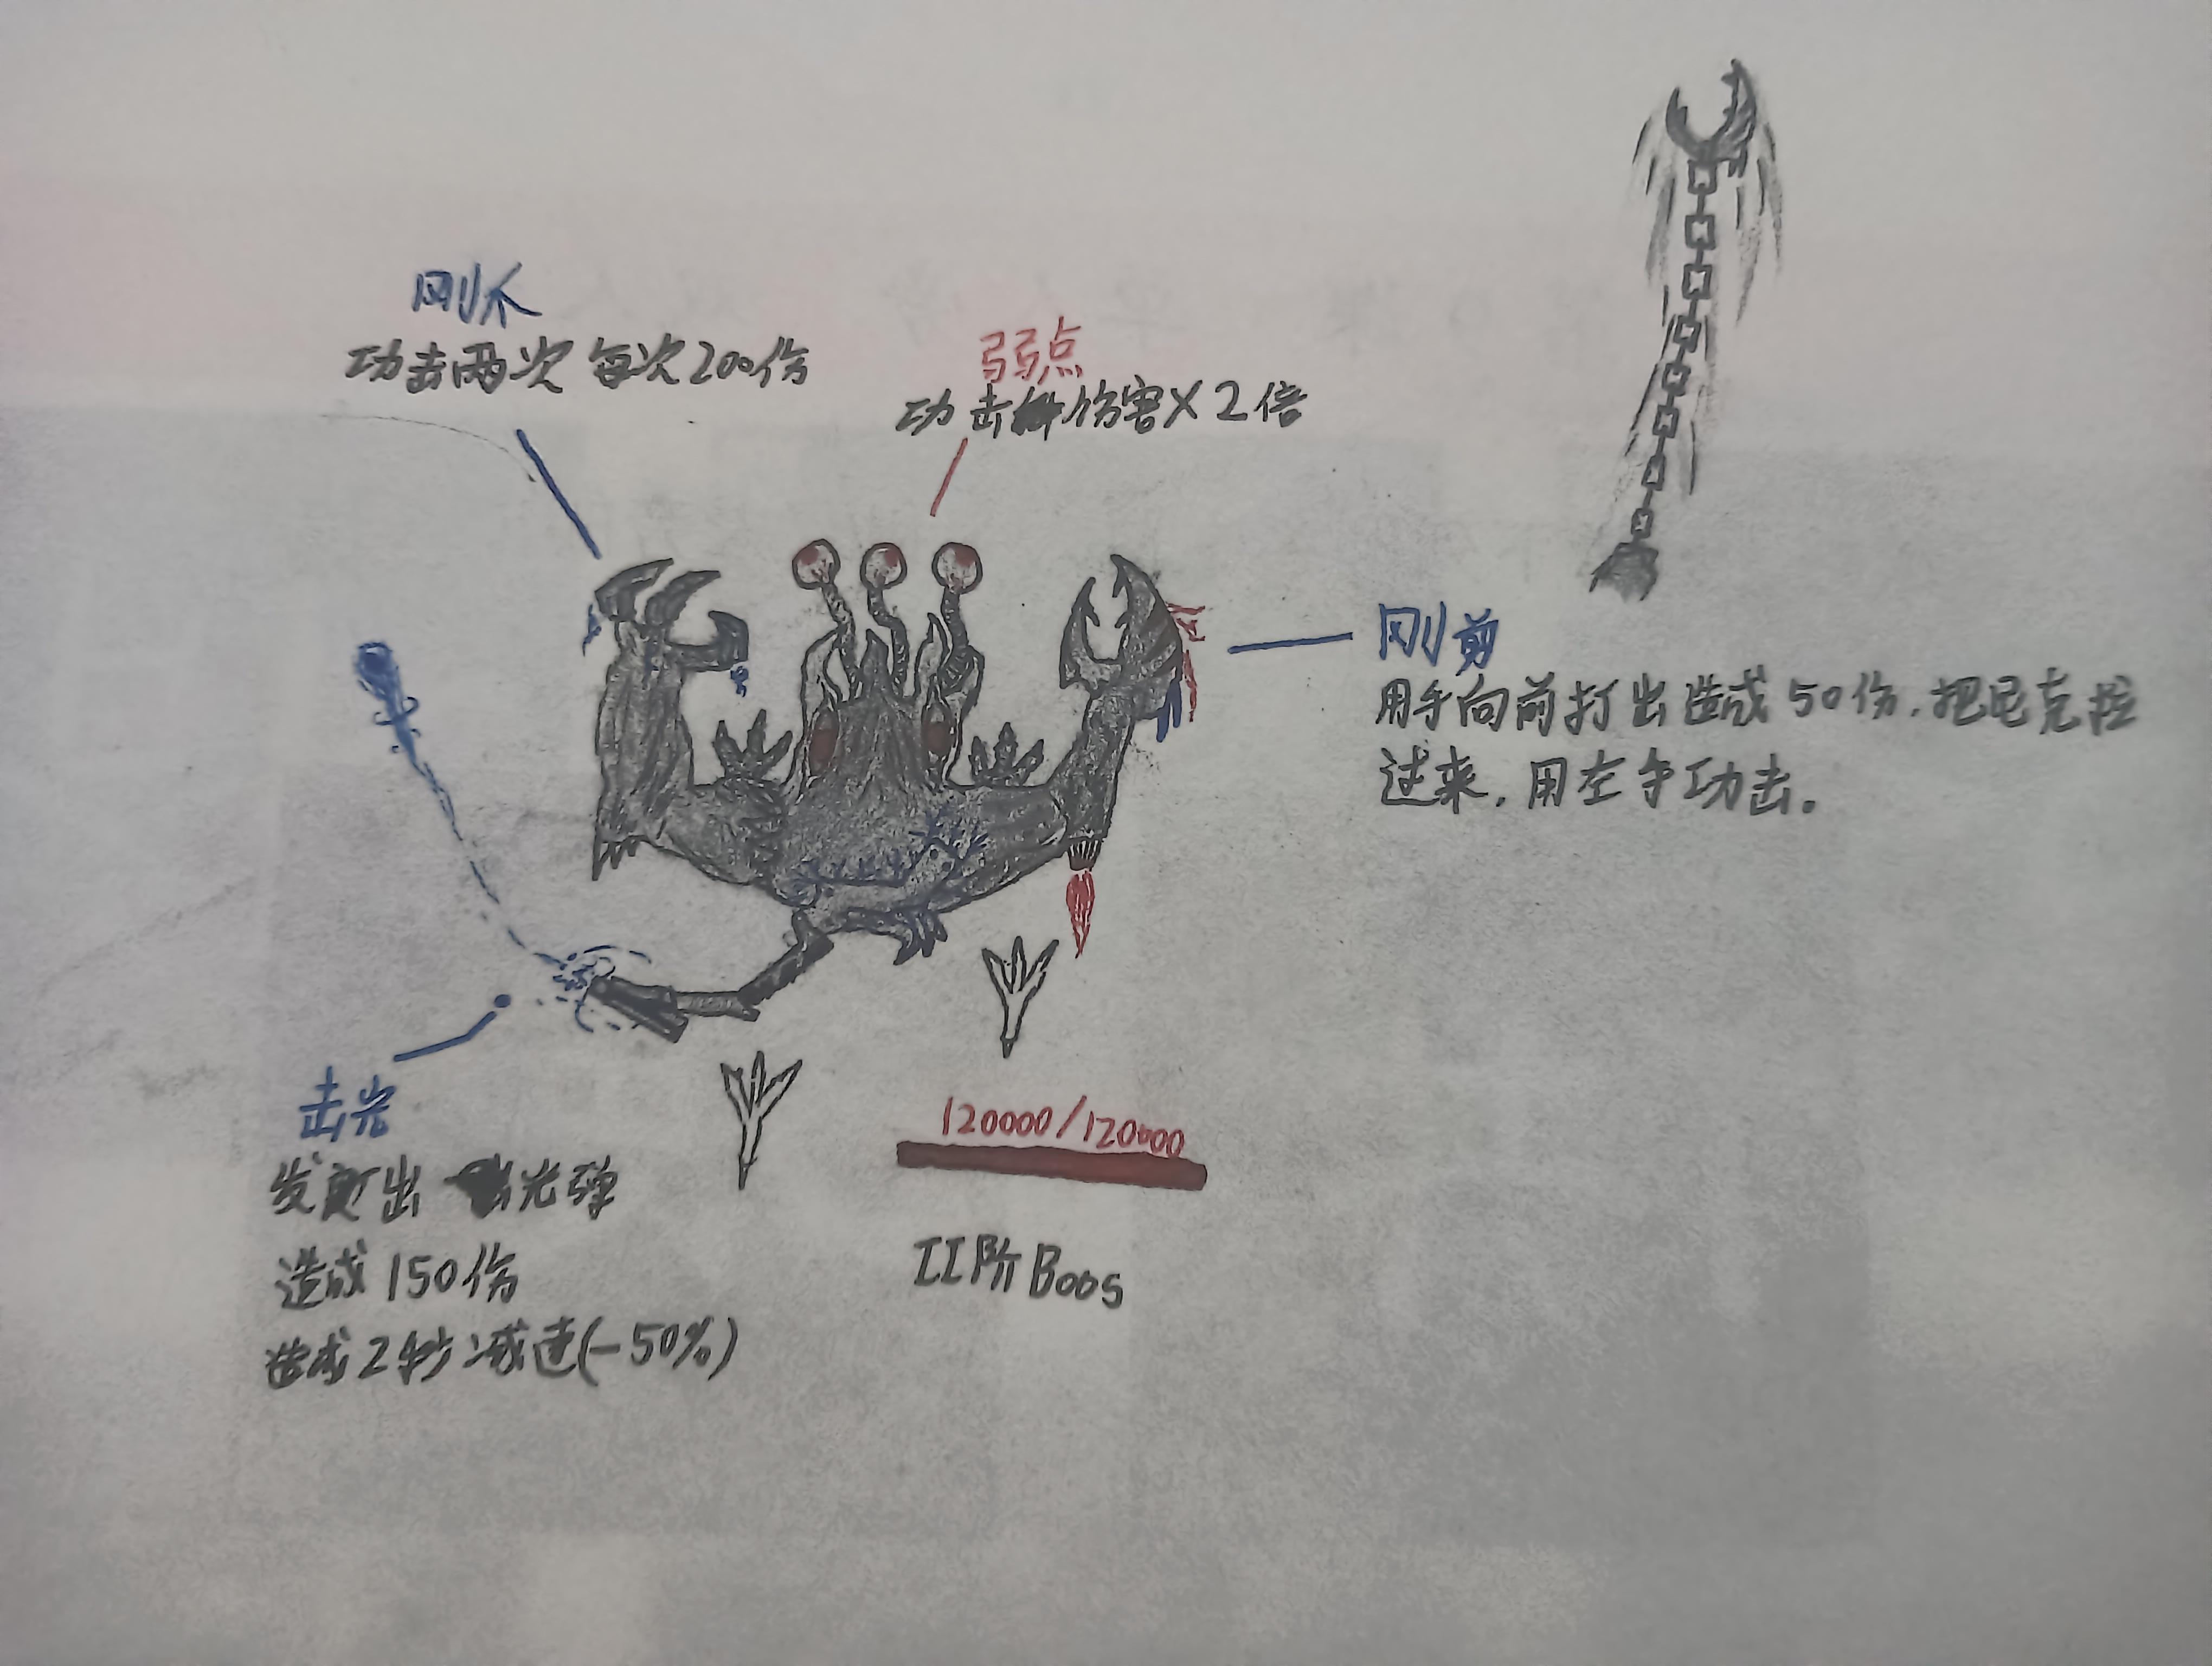 刚爪
功击两次 每次200伤
弱点
功击伤害×2倍
刚剪
用手向前打出造成50伤,把尼克拉
过来,用左手功击。
击光
发射出光弹
造成150伤
造成2秒减速(-50%)
120000/120000
II阶Boos